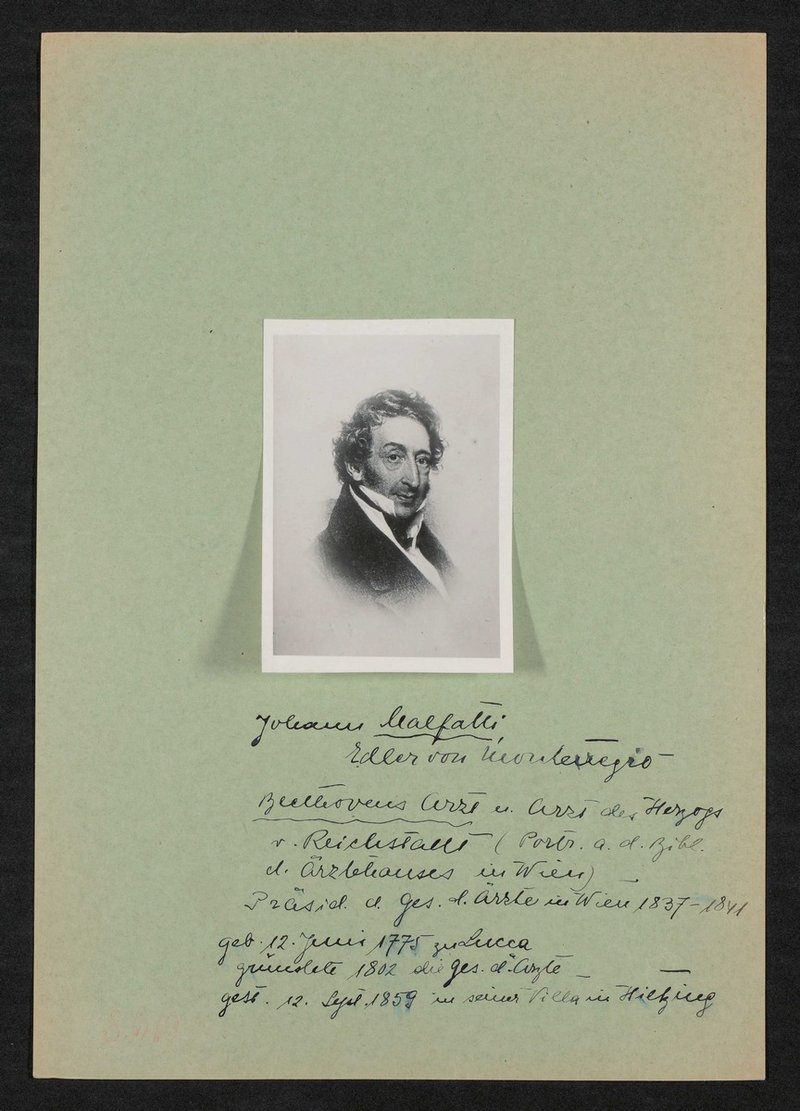 Johann Malfatti,
Edler von Monteregio
Beethovens Arzt u. Arzt des Herzogs
v. Reichstatt (Portr. a. d. Bibl.
d. Ärztehauses in Wien) –
Präsid. d. Ges. d. Ärzte in Wien 1837–1841
geb. 12. Juni 1775 zu Lucca
gründete 1802 die Ges. d. Ärzte –
gest. 12. Sept. 1859 in seiner Villa in Hietzing